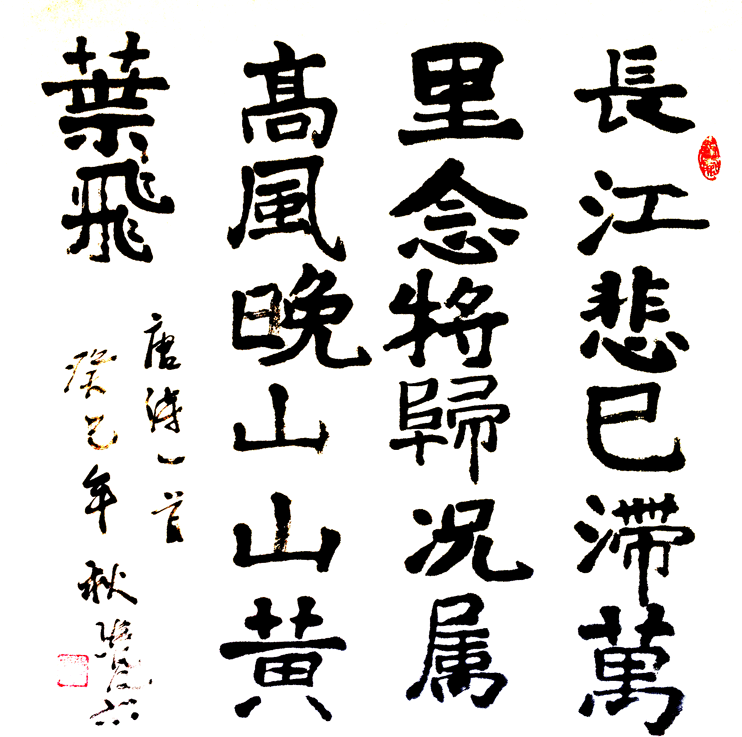 長江悲已滞萬
里念将歸况属
高風晚山山黄
葉飛
唐詩一首
癸巳年秋